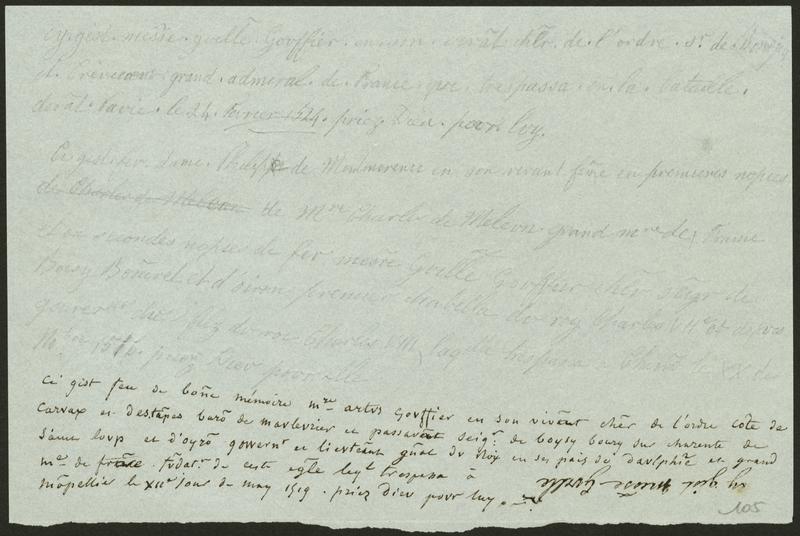 Cy. gist. messe. guelle. Gouffier. en son. vivāt. chēr. de. l'ordre. Sr. de.
et. Crevecœur. grand. admeral. de. France. que. trespassa. en. la. bataille.
devāt. Pavie. le. 24. Fevrier 1524. priez Dieu. pour luy.
Ci gist. Dame. Philippe de Montmorence en son vivant fēme en premieres nopces
de Charles de Meleun de Mre Charles de Meleun grand mre de France
et en secondes nopces de feu messre Guille Gouffier chēr seigr de
Boisy Boñivet et d'oiron premier chabellā du roy Charles VII et depuis
gouvernr du filz du roi Charles VIII laqlle trespassa a Chinō le XX de
15 6. priez Dieu pour elle
Ci gist feu de boñe mémoire mre artus Gouffier en son vivēnt chēr de l'ordre cōte de
Carvax et destāpes barō de maulevrier et passavēnt seigr. de boysy boury sur charente de
s'ame loup et d'oyrō gouvernr et lieutenāt gñal du Roy en ses païs de daulphié et grand
mre de frāce. fōdatr. de ceste eglē leql trespassa à
mōpellier le XIIe jour de may 1519. priez dieu pour luy.
cy gist messre guelle
105